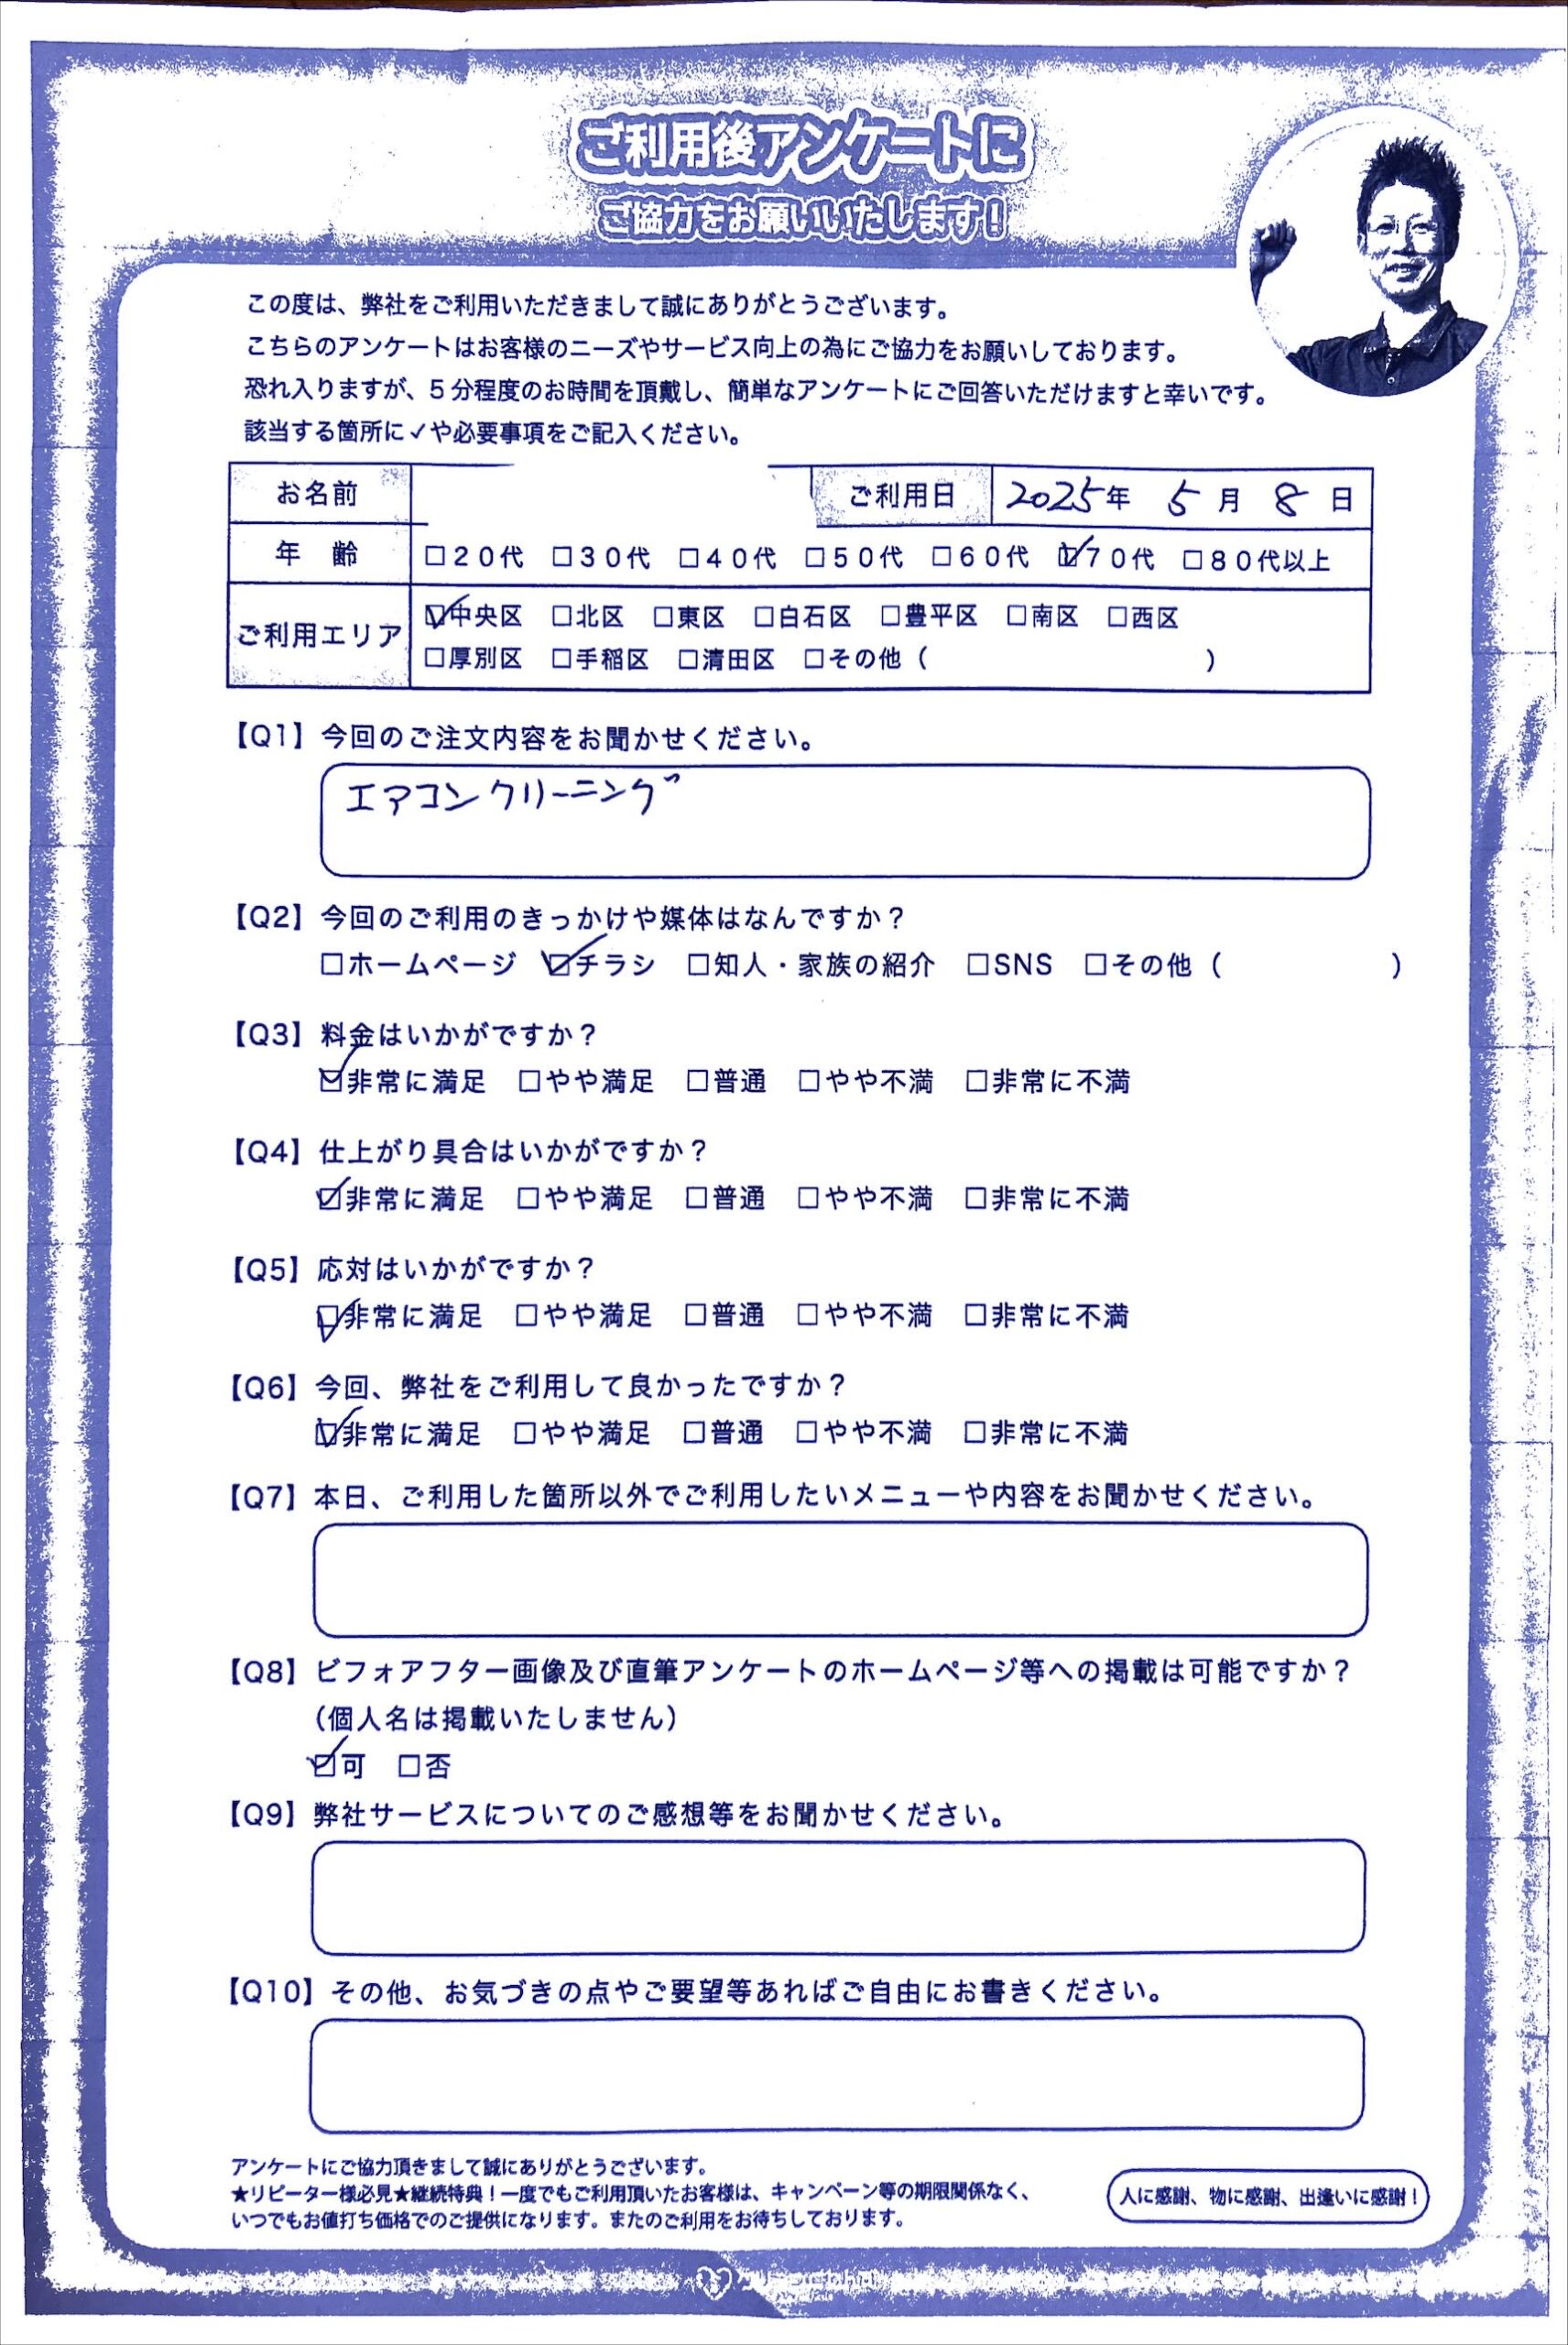 ご利用後アンケートに
ご協力をお願いいたします！
この度は、弊社をご利用いただきまして誠にありがとうございます。
こちらのアンケートはお客様のニーズやサービス向上の為にご協力をお願いしております。
恐れ入りますが、5分程度のお時間を頂戴し、簡単なアンケートにご回答いただけますと幸いです。
該当する箇所に✓や必要事項をご記入ください。
お名前 ご利用日 2025年 5月 8日
年 齢 □20代 □30代 □40代 □50代 □60代 ☑70代 □80代以上
ご利用エリア ☑中央区 □北区 □東区 □白石区 □豊平区 □南区 □西区
□厚別区 □手稲区 □清田区 □その他（ ）
【Q1】今回のご注文内容をお聞かせください。
エアコンクリーニング
【Q2】今回のご利用のきっかけや媒体はなんですか？
□ホームページ ☑チラシ □知人・家族の紹介 □SNS □その他（ ）
【Q3】料金はいかがですか？
☑非常に満足 □やや満足 □普通 □やや不満 □非常に不満
【Q4】仕上がり具合はいかがですか？
☑非常に満足 □やや満足 □普通 □やや不満 □非常に不満
【Q5】応対はいかがですか？
☑非常に満足 □やや満足 □普通 □やや不満 □非常に不満
【Q6】今回、弊社をご利用して良かったですか？
☑非常に満足 □やや満足 □普通 □やや不満 □非常に不満
【Q7】本日、ご利用した箇所以外でご利用したいメニューや内容をお聞かせください。
【Q8】ビフォアフター画像及び直筆アンケートのホームページ等への掲載は可能ですか？
（個人名は掲載いたしません）
☑可 □否
【Q9】弊社サービスについてのご感想等をお聞かせください。
【Q10】その他、お気づきの点やご要望等あればご自由にお書きください。
アンケートにご協力頂きまして誠にありがとうございます。
★リピーター様必見★継続特典！一度でもご利用頂いたお客様は、キャンペーン等の期限関係なく、
いつでもお値打ち価格でのご提供になります。またのご利用をお待ちしております。
人に感謝、物に感謝、出逢いに感謝！